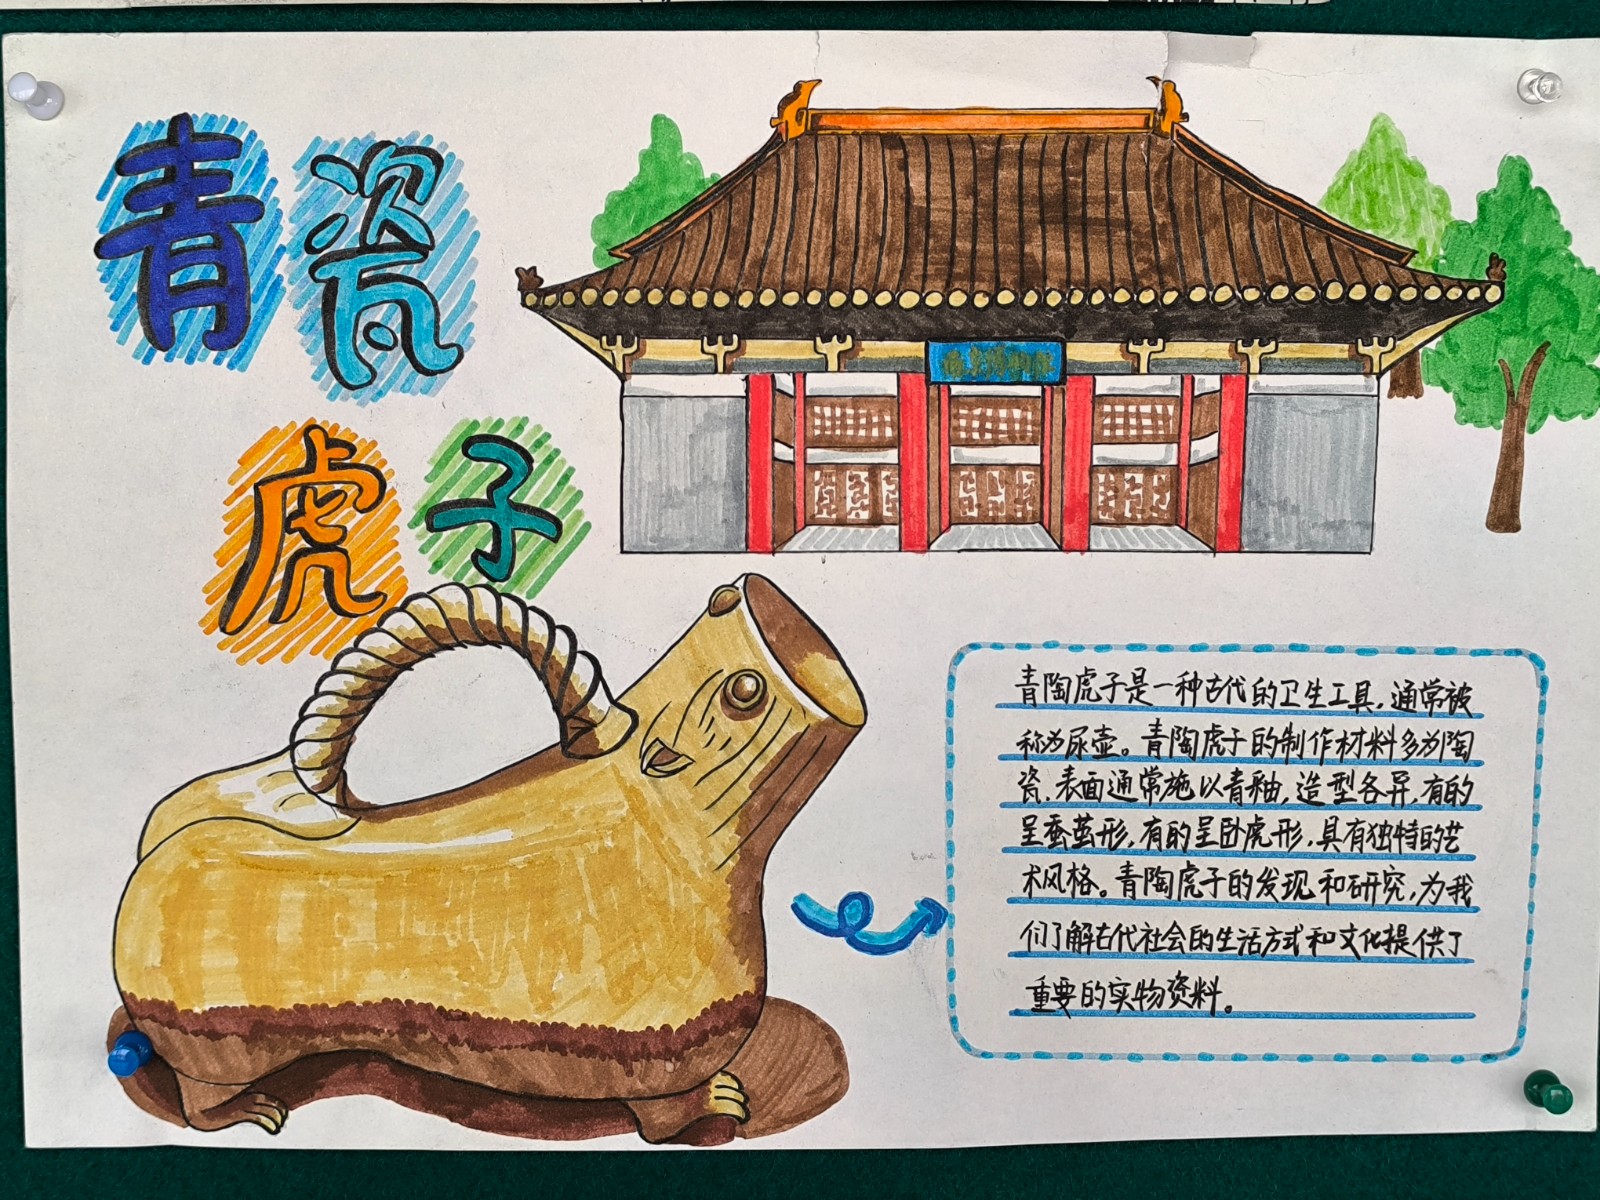 青瓷
虎子
青陶虎子是一种古代的卫生工具，通常被
称为尿壶。青陶虎子的制作材料多为陶
瓷，表面通常施以青釉，造型各异，有的
呈蚕茧形，有的呈卧虎形，具有独特的艺
术风格。青陶虎子的发现和研究，为我
们了解古代社会的生活方式和文化提供了
重要的实物资料。